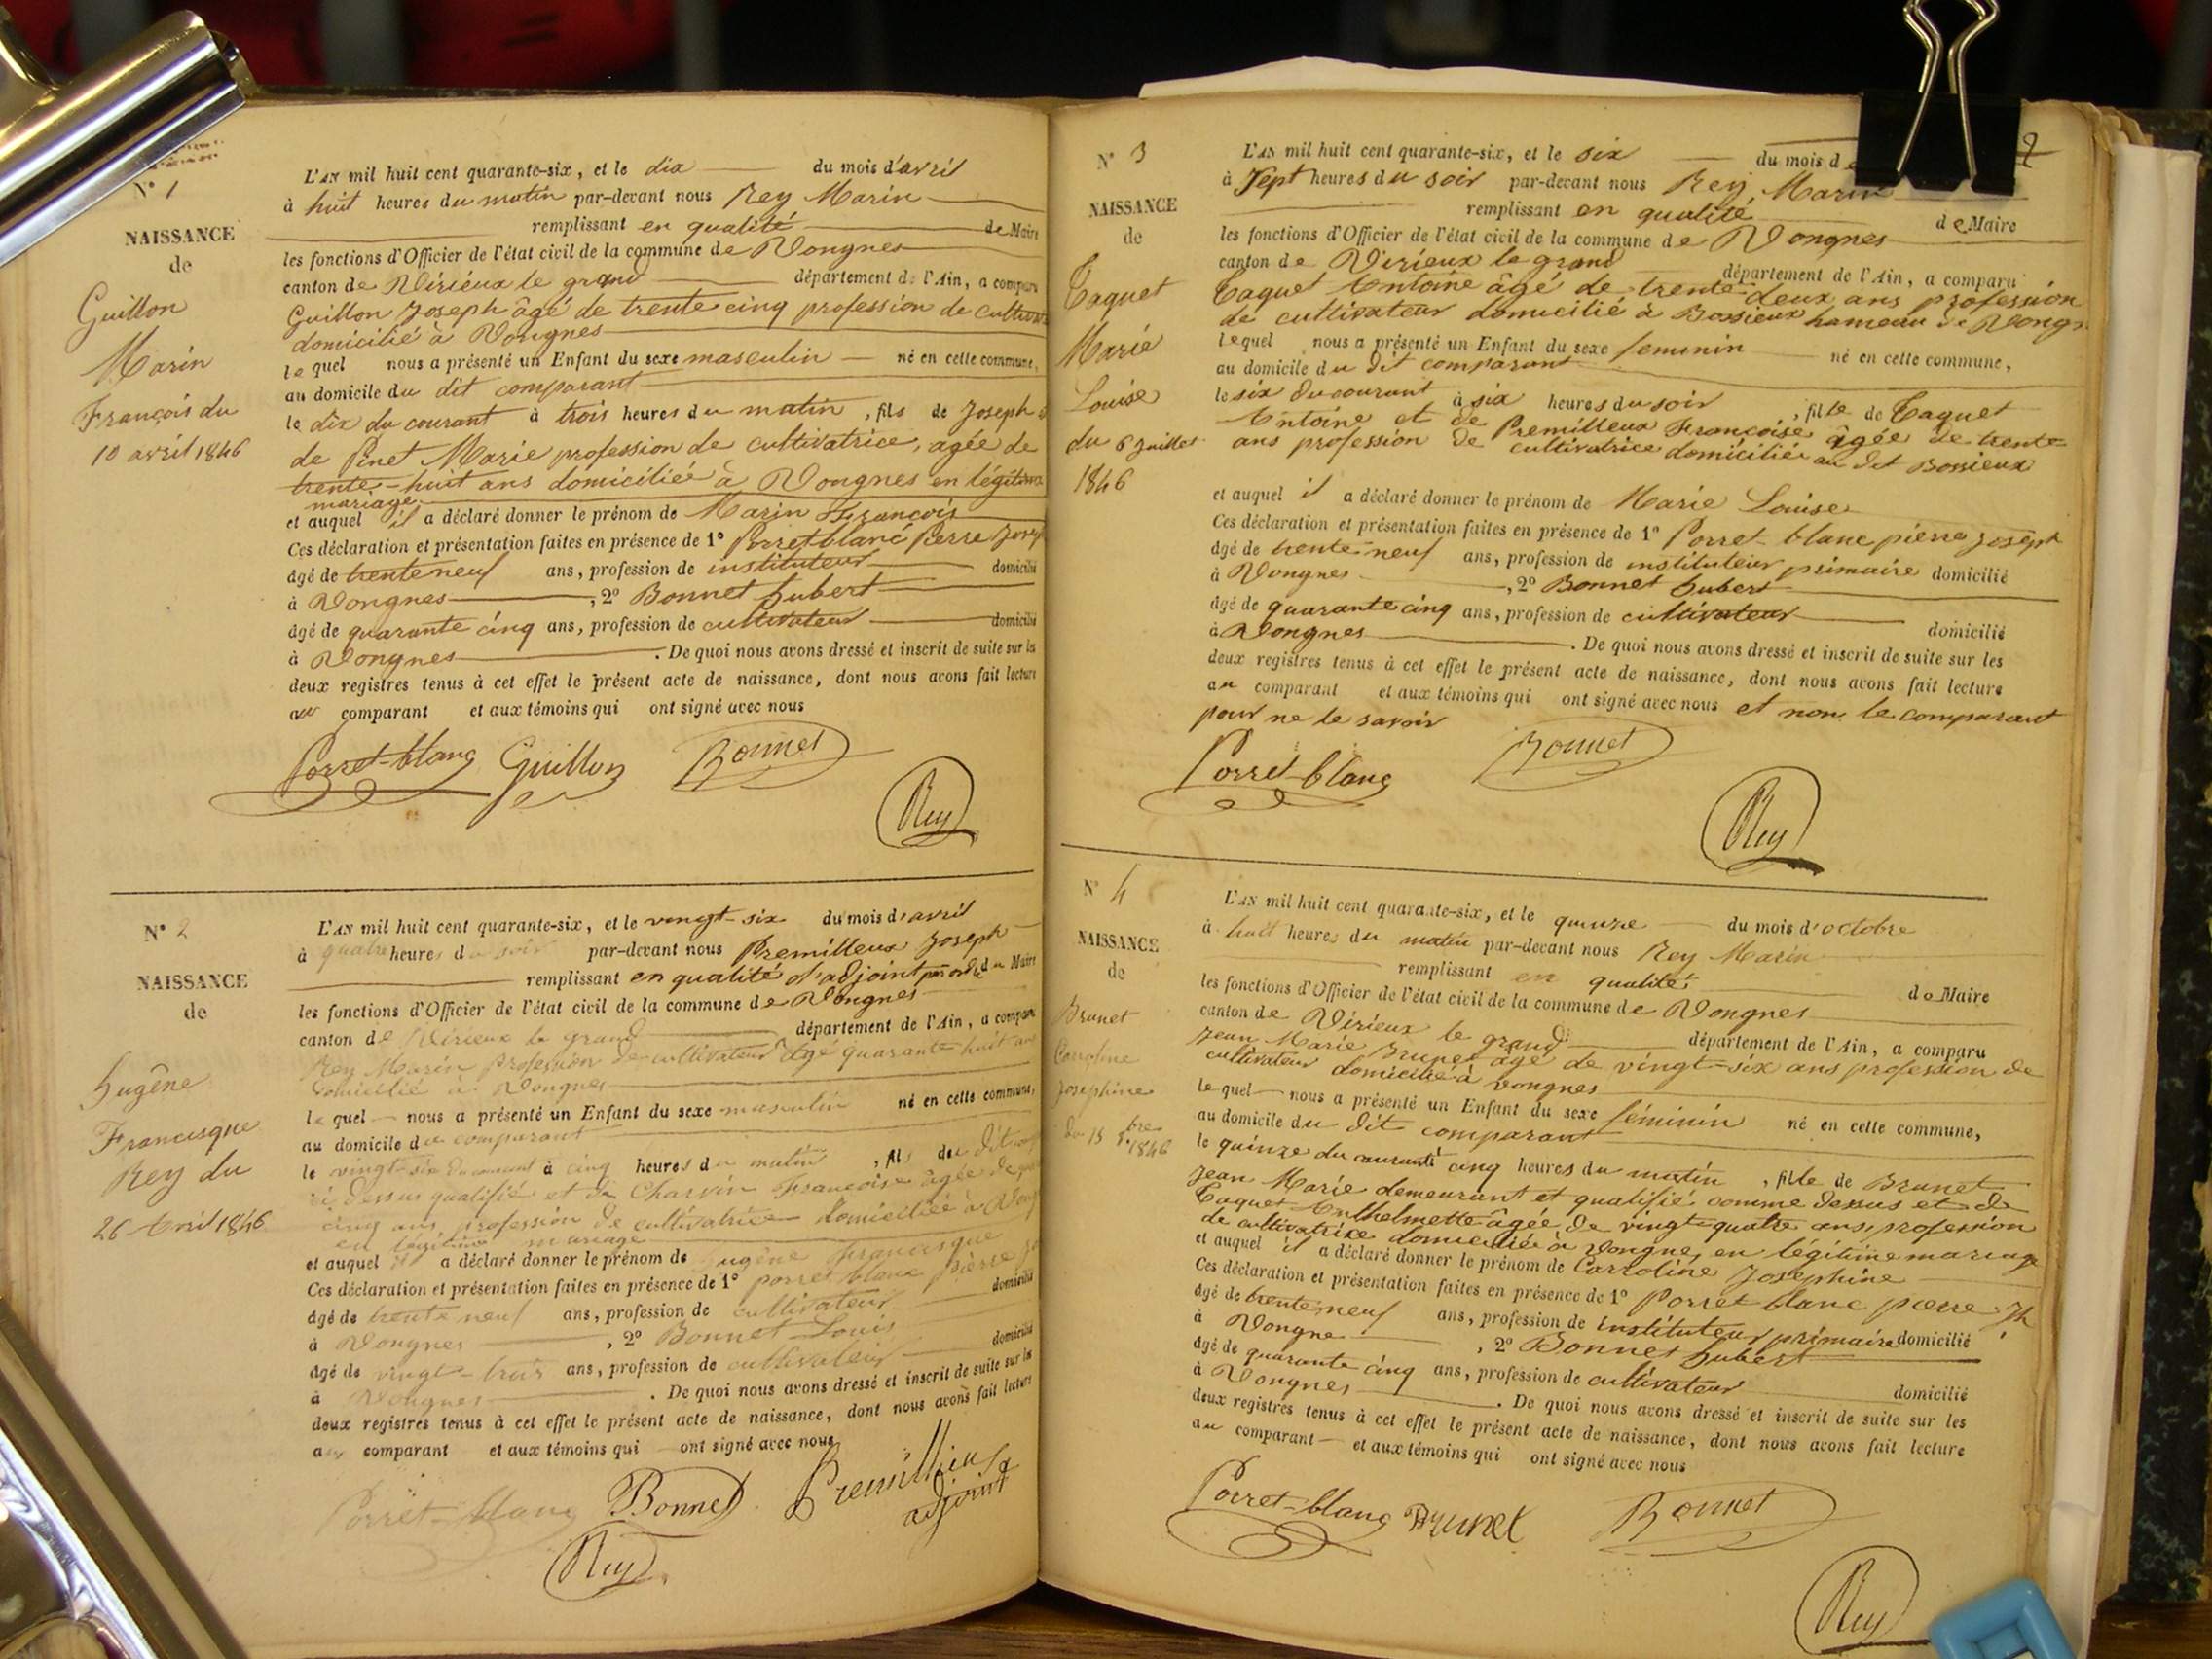 N° 1
NAISSANCE
de
Guillon
Marin
François du
10 avril 1846
L'AN mil huit cent quarante-six, et le dix du mois d'avril
à huit heures du matin par-devant nous Rey Marin
remplissant en qualité de Maire
les fonctions d'Officier de l'état civil de la commune de Vongnes
canton de Virieux le grand département de l'Ain, a comparu
Guillon Joseph âgé de trente cinq profession de
domicilié à Vongnes
le quel nous a présenté un Enfant du sexe masculin né en cette commune,
au domicile du dit comparant
le dix du courant à trois heures du matin, fils de Joseph
de Pinet Marie profession de cultivatrice, agée de
trente-huit ans domiciliée à Vongnes en légitime
mariage
et auquel il a déclaré donner le prénom de Marin François
Ces déclaration et présentation faites en présence de 1° Porret blanc Pierre
âgé de trente neuf ans, profession de instituteur domicilié
à Vongnes, 2° Bonnet hubert
âgé de quarante cinq ans, profession de cultivateur domicilié
à Vongnes. De quoi nous avons dressé et inscrit de suite sur les
deux registres tenus à cet effet le présent acte de naissance, dont nous avons fait lecture
au comparant et aux témoins qui ont signé avec nous
Porret-blanc Guillon Bonnet
Rey
N° 2
NAISSANCE
de
Eugêne
Francisque
Rey du
26 Avril 1846
L'AN mil huit cent quarante-six, et le vingt-six du mois d'avril
à quatre heures du soir par-devant nous Premilleux Joseph
remplissant en qualité d'adjoint par ordre du Maire
les fonctions d'Officier de l'état civil de la commune de Vongnes
canton de Virieux le grand département de l'Ain, a comparu
Rey Marin profession de cultivateur âgé quarante huit ans
domicilié à Vongnes
le quel nous a présenté un Enfant du sexe masculin né en cette commune,
au domicile du comparant
le vingt-six du courant à cinq heures du matin, fils du dit
ci dessus qualifié et de Charvin Françoise âgée de
cinq ans profession de cultivatrice domiciliée à
en légitime mariage
et auquel il a déclaré donner le prénom de Eugêne Francisque
Ces déclaration et présentation faites en présence de 1° porret blanc pierre
âgé de trente neuf ans, profession de cultivateur domicilié
à Vongnes, 2° Bonnet Louis
âgé de vingt-trois ans, profession de cultivateur domicilié
à Vongnes. De quoi nous avons dressé et inscrit de suite sur les
deux registres tenus à cet effet le présent acte de naissance, dont nous avons fait lecture
au comparant et aux témoins qui ont signé avec nous
Porret-blanc Bonnet Premillieux
adjoint
Rey
2
N° 3
NAISSANCE
de
Taquet
Marie
Louise
du 6 juillet
1846
L'AN mil huit cent quarante-six, et le six du mois de
à Sept heures du soir par-devant nous Rey Marin
remplissant en qualité de Maire
les fonctions d'Officier de l'état civil de la commune de Vongnes
canton de Virieux le grand département de l'Ain, a comparu
Taquet Antoine âgé de trente deux ans profession
de cultivateur domicilié à Bossieux hameau de
lequel nous a présenté un Enfant du sexe feminin né en cette commune,
au domicile du dit comparant
le six du courant à six heures du soir, fille de Taquet
Antoine et de Premilleux Françoise âgée de trente
ans profession de cultivatrice domiciliée au dit Bossieux
et auquel il a déclaré donner le prénom de Marie Louise
Ces déclaration et présentation faites en présence de 1° Porret blanc pierre joseph
âgé de trente neuf ans, profession de instituteur primaire domicilié
à Vongnes, 2° Bonnet hubert
âgé de quarante cinq ans, profession de cultivateur domicilié
à Vongnes. De quoi nous avons dressé et inscrit de suite sur les
deux registres tenus à cet effet le présent acte de naissance, dont nous avons fait lecture
au comparant et aux témoins qui ont signé avec nous et non le comparant
pour ne le savoir
Porret-blanc Bonnet
Rey
N° 4
NAISSANCE
de
Brunet
Caroline
Josephine
du 15 8.bre
1846
L'AN mil huit cent quarante-six, et le quinze du mois d'octobre
à huit heures du matin par-devant nous Rey Marin
remplissant en qualité de Maire
les fonctions d'Officier de l'état civil de la commune de Vongnes
canton de Virieux le grand département de l'Ain, a comparu
Jean Marie Brunet âgé de vingt-six ans profession de
cultivateur domicilié à Vongnes
le quel nous a présenté un Enfant du sexe féminin né en cette commune,
au domicile du dit comparant
le quinze du courant à cinq heures du matin, fille de Brunet
Jean Marie demeurant et qualifié comme dessus et de
Taquet Anthelmette âgée de vingt-quatre ans, profession
de cultivatrice domiciliée à Vongnes en légitime mariage
et auquel il a déclaré donner le prénom de Carroline Joséphine
Ces déclaration et présentation faites en présence de 1° Porret blanc pierre Jh
âgé de trente neuf ans, profession de instituteur primaire domicilié
à Vongne, 2° Bonnet hubert
âgé de quarante cinq ans, profession de cultivateur domicilié
à Vongnes. De quoi nous avons dressé et inscrit de suite sur les
deux registres tenus à cet effet le présent acte de naissance, dont nous avons fait lecture
au comparant et aux témoins qui ont signé avec nous
Porret-blanc Brunet Bonnet
Rey